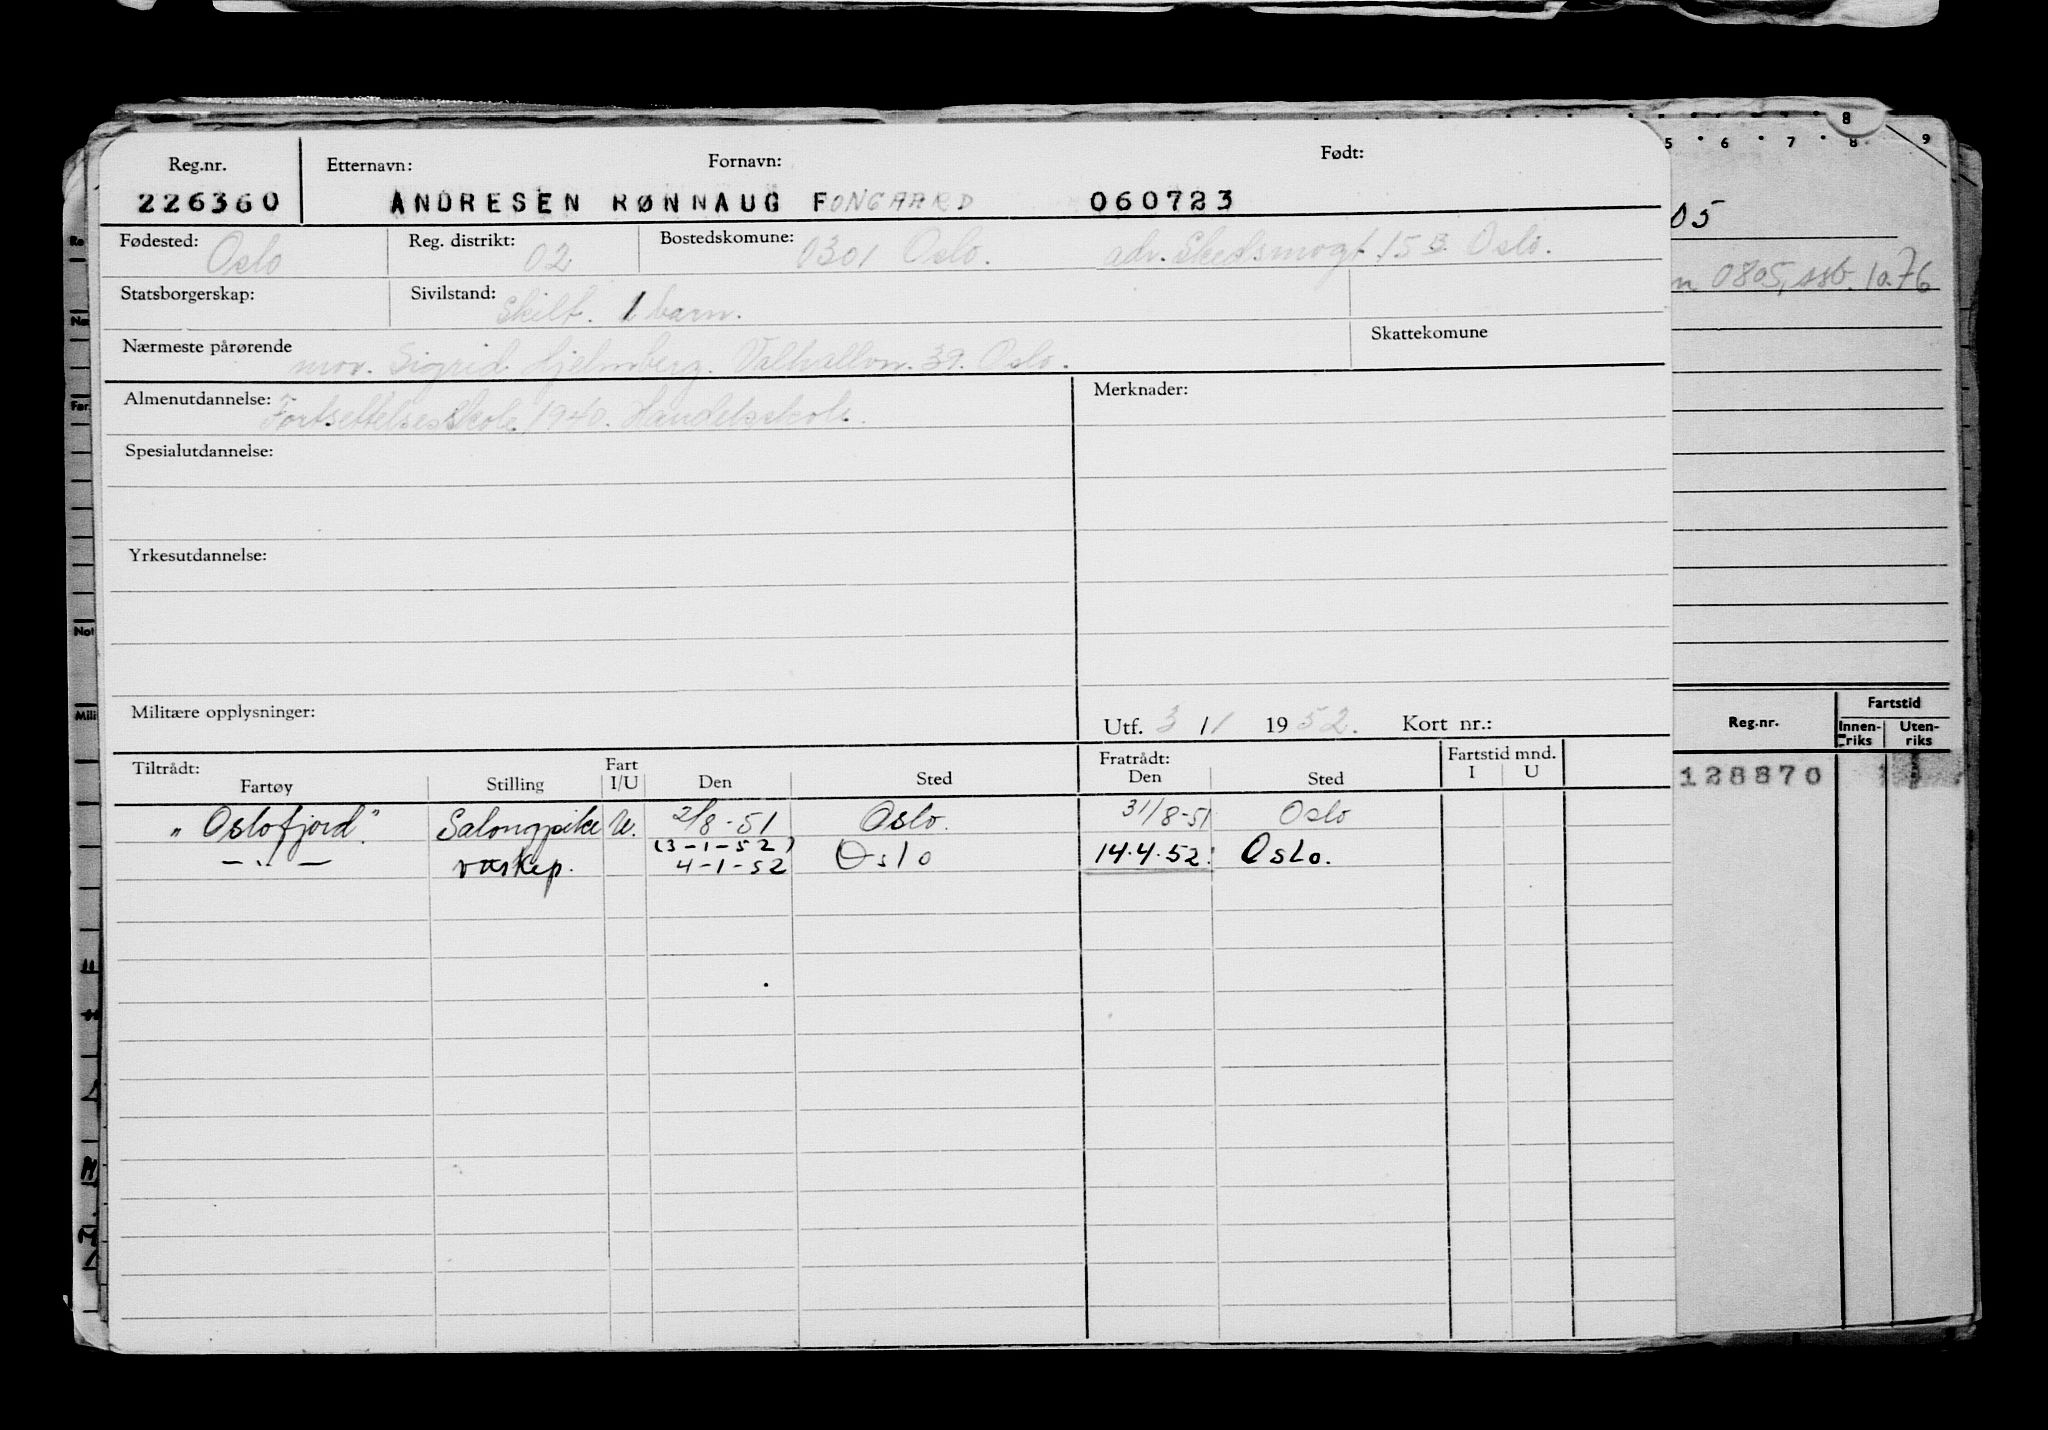 8
5 6 7 8 9
Reg.nr. Etternavn: Fornavn: Født:
226360 ANDRESEN RØNNAUG FONGAARD 060723
05
Fødested: Oslo Reg. distrikt: 02 Bostedskomune: 0301 Oslo. adr. Skedsmogt 15 B Oslo.
0805, ssb. 10.76
Statsborgerskap: Sivilstand: Skilt. 1 barn.
Nærmeste pårørende mor. Sigrid Hjelmberg. Valhallvn. 39. Oslo. Skattekomune
Almenutdannelse: Fortsettelsesskole 1940. Handelsskole. Merknader:
Spesialutdannelse:
Yrkesutdannelse:
Militære opplysninger: Utf. 3 / 1 1952. Kort nr.:
Reg.nr. Fartstid
Innenriks Utenriks
128870
Tiltrådt: Fart Fratrådt: Fartstid mnd.
Fartøy Stilling I/U Den Sted Den Sted I U
"Oslofjord". Salongpike U. 2/8-51 Oslo. 31/8-51 Oslo
(3-1-52)
—〃— vaskep. 4-1-52 Oslo 14.4.52. Oslo.